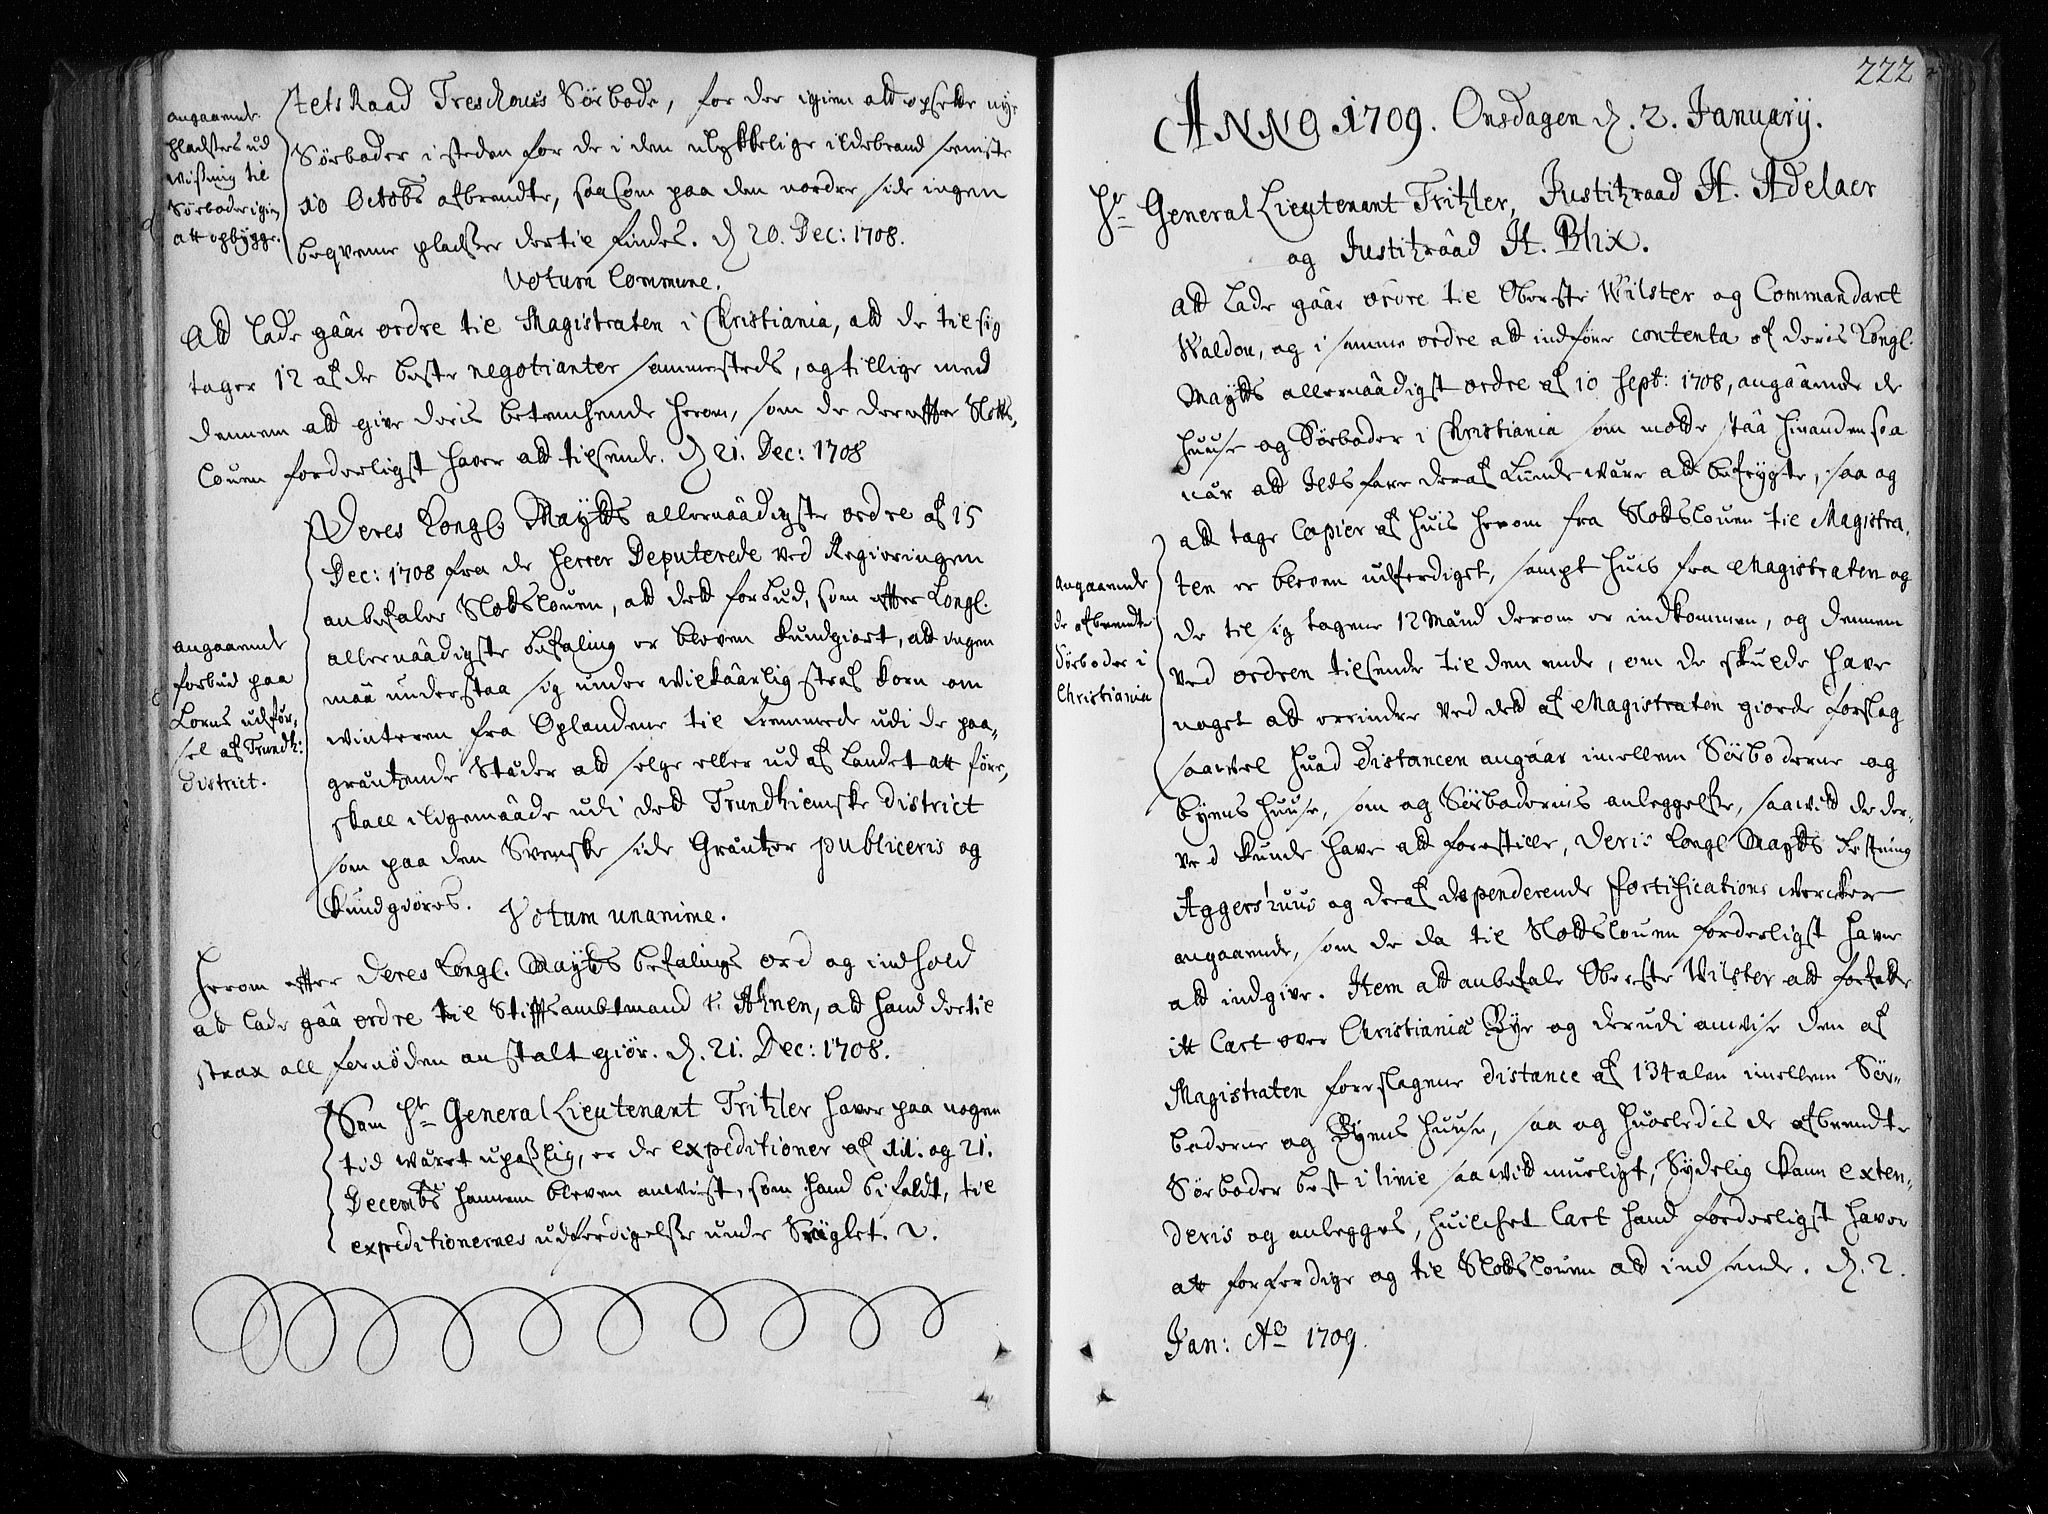 angaaende
pladsers ud
wißning til
Sörboder igien
att opbygge.
tets Raad Treschouis Sörbode, for der igien att opsette nye
Sörboder i steden for de i den ulykkelige ildebrand seeniste
10 Octobs afbrendte, saasom paa den nordre side ingen
beqveme pladser dertil findes. D 20. Dec: 1708.
Votum Commune.
Att lade gaar ordre til Magistraten i Christiania, att de til sig
tager 12 af de beste negotianter sammesteds, og tillige med
dennem att give deris betenckende herom, som de derefter Slotts,
louen forderligst haver att tilsende. D 21. Dec: 1708
angaaende
forbud paa
Korns udför,
sel af Trundh:
District.
Deres Kongl. Maytts allernaadigste ordre af 15
Dec: 1708 fra de herrer Deputerede ved Regieringen
anbefaler Slottslouen, att dett forbud, som efter Kongl.
allernaadigste befaling er bleven kundgiort, att ingen
maa understaa sig under wilkaarlig straf korn om
winteren fra Oplandene til Fremmede udi de paa,
gräntzende Städer att selge eller ud af Landet att före,
skall i ligemaade udi dett Trundhiemske District
som paa den Svenske side Gräntzer publiceris og
kundgiöres. Votum unanime.
Herom efter Deres Kongl. Maytts befalings ord og indhold
att lade gaa ordre til Stifftsambtmand v: Ahnen, att hand dertil
strax all fornöden anstalt giör. D. 21. Dec: 1708.
Som Hr General Lieutenant Tritzler haver paa nogen
tid wäret upaßlig, er de expeditioner af 11. og 21.
Decembs hannem bleven anwist, som hand bifaldt, til
expeditionernes udferdigelse under Seiglet. 2.
222
ANNO 1709. Onsdagen D. 2. Januarij.
Hr General Lieutenant Tritzler, Justitzraad H. Adelaer
og Justitzraad H. Blix.
att lade gaar ordre til Oberste Wilster og Commandant
Waldou, og i samme ordre att indföre contenta af deris Kongl.
Maytts allernaadigst ordre af 10 Sept: 1708, angaaende de
huuse og Sörboder i Christiania som motte staa hinanden saa
när att Ildsfare deraf kunde wäre att befrygte, saa og
angaaende
de afbrendte
Sörboder i
Christiania
att tage Copier af huis herom fra Slottslouen til Magistra,
ten er bleven udferdiget, sampt huis fra Magistraten og
de til sig tagene 12 Mänd derom er indkommen, og dennem
ved ordren tilsende til den ende, om de skulde have
noget att errindre ved dett af Magistraten giorde forslag
saawel huad Distancen angaar imellem Sörboderne og
byens huuse, som og Sörbodernis anleggelse, saawitt de der,
ved kunde have att forestille, Deris Kongl Maytts Festning
Aggershuus og deraf dependerende Fortifications wercker
angaaende, som de da til Slottslouen forderligst haver
att indgive. Item att anbefale Oberste Wilster att forfatte
itt Cart over Christiania Bye og derudi anvise den af
Magistraten foreslagene distance af 134 alen imellem Sör-
boderne og Byens huuse, saa og huorledis de afbrendte
Sörboder best i linie saawitt mueligt, Sydelig kann exten,
deris og anlegges, huilchet Cart hand forderligst haver
att forferdige og til Slottslouen att indsende. D. 2.
Jan: Ao 1709.